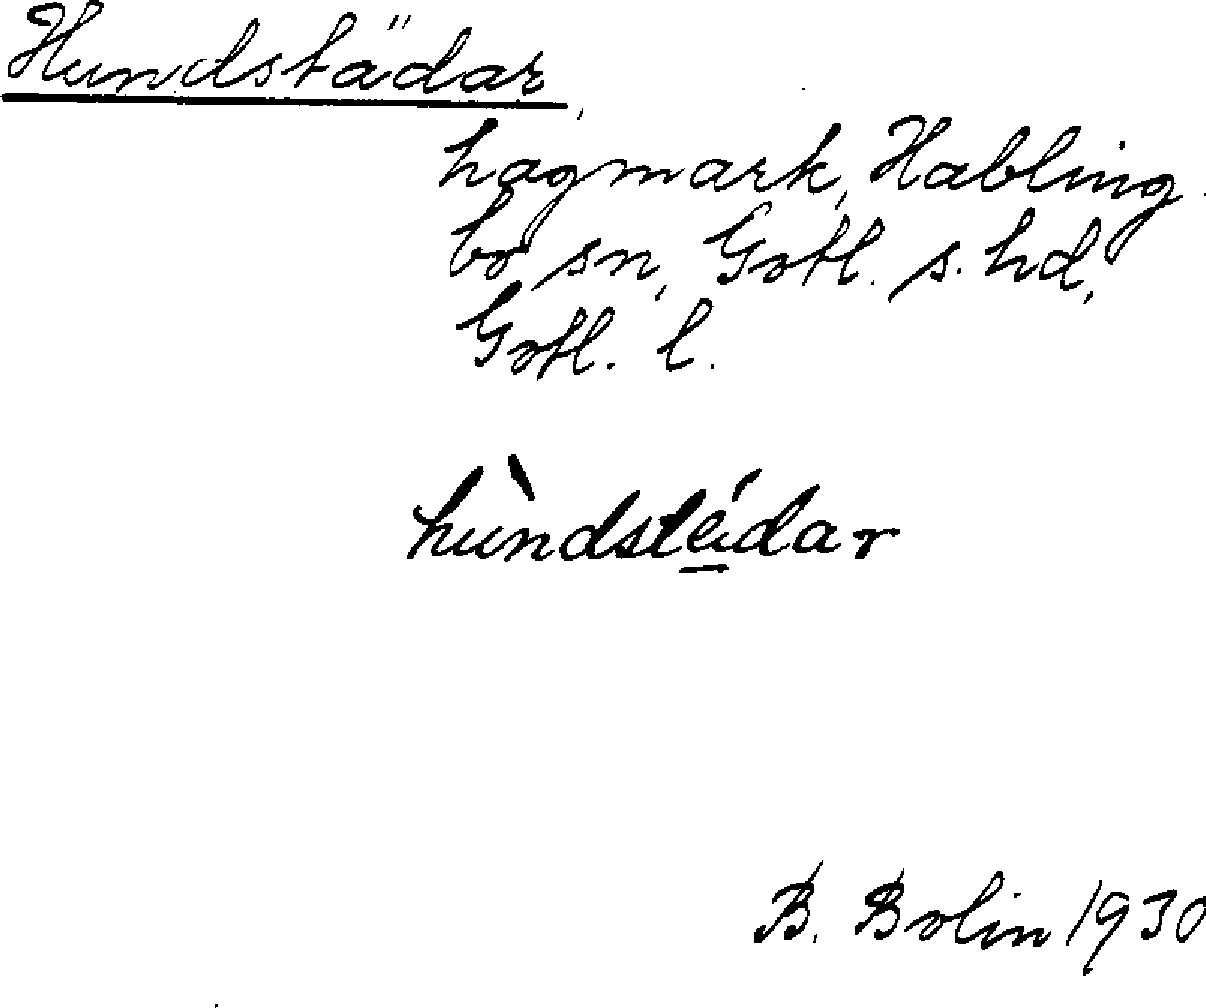 Hundstädar,
hagmark, Habling-
bo sn, Gotl. s. hd,
Gotl. l.
hùndstéidar
B. Bolin 1930